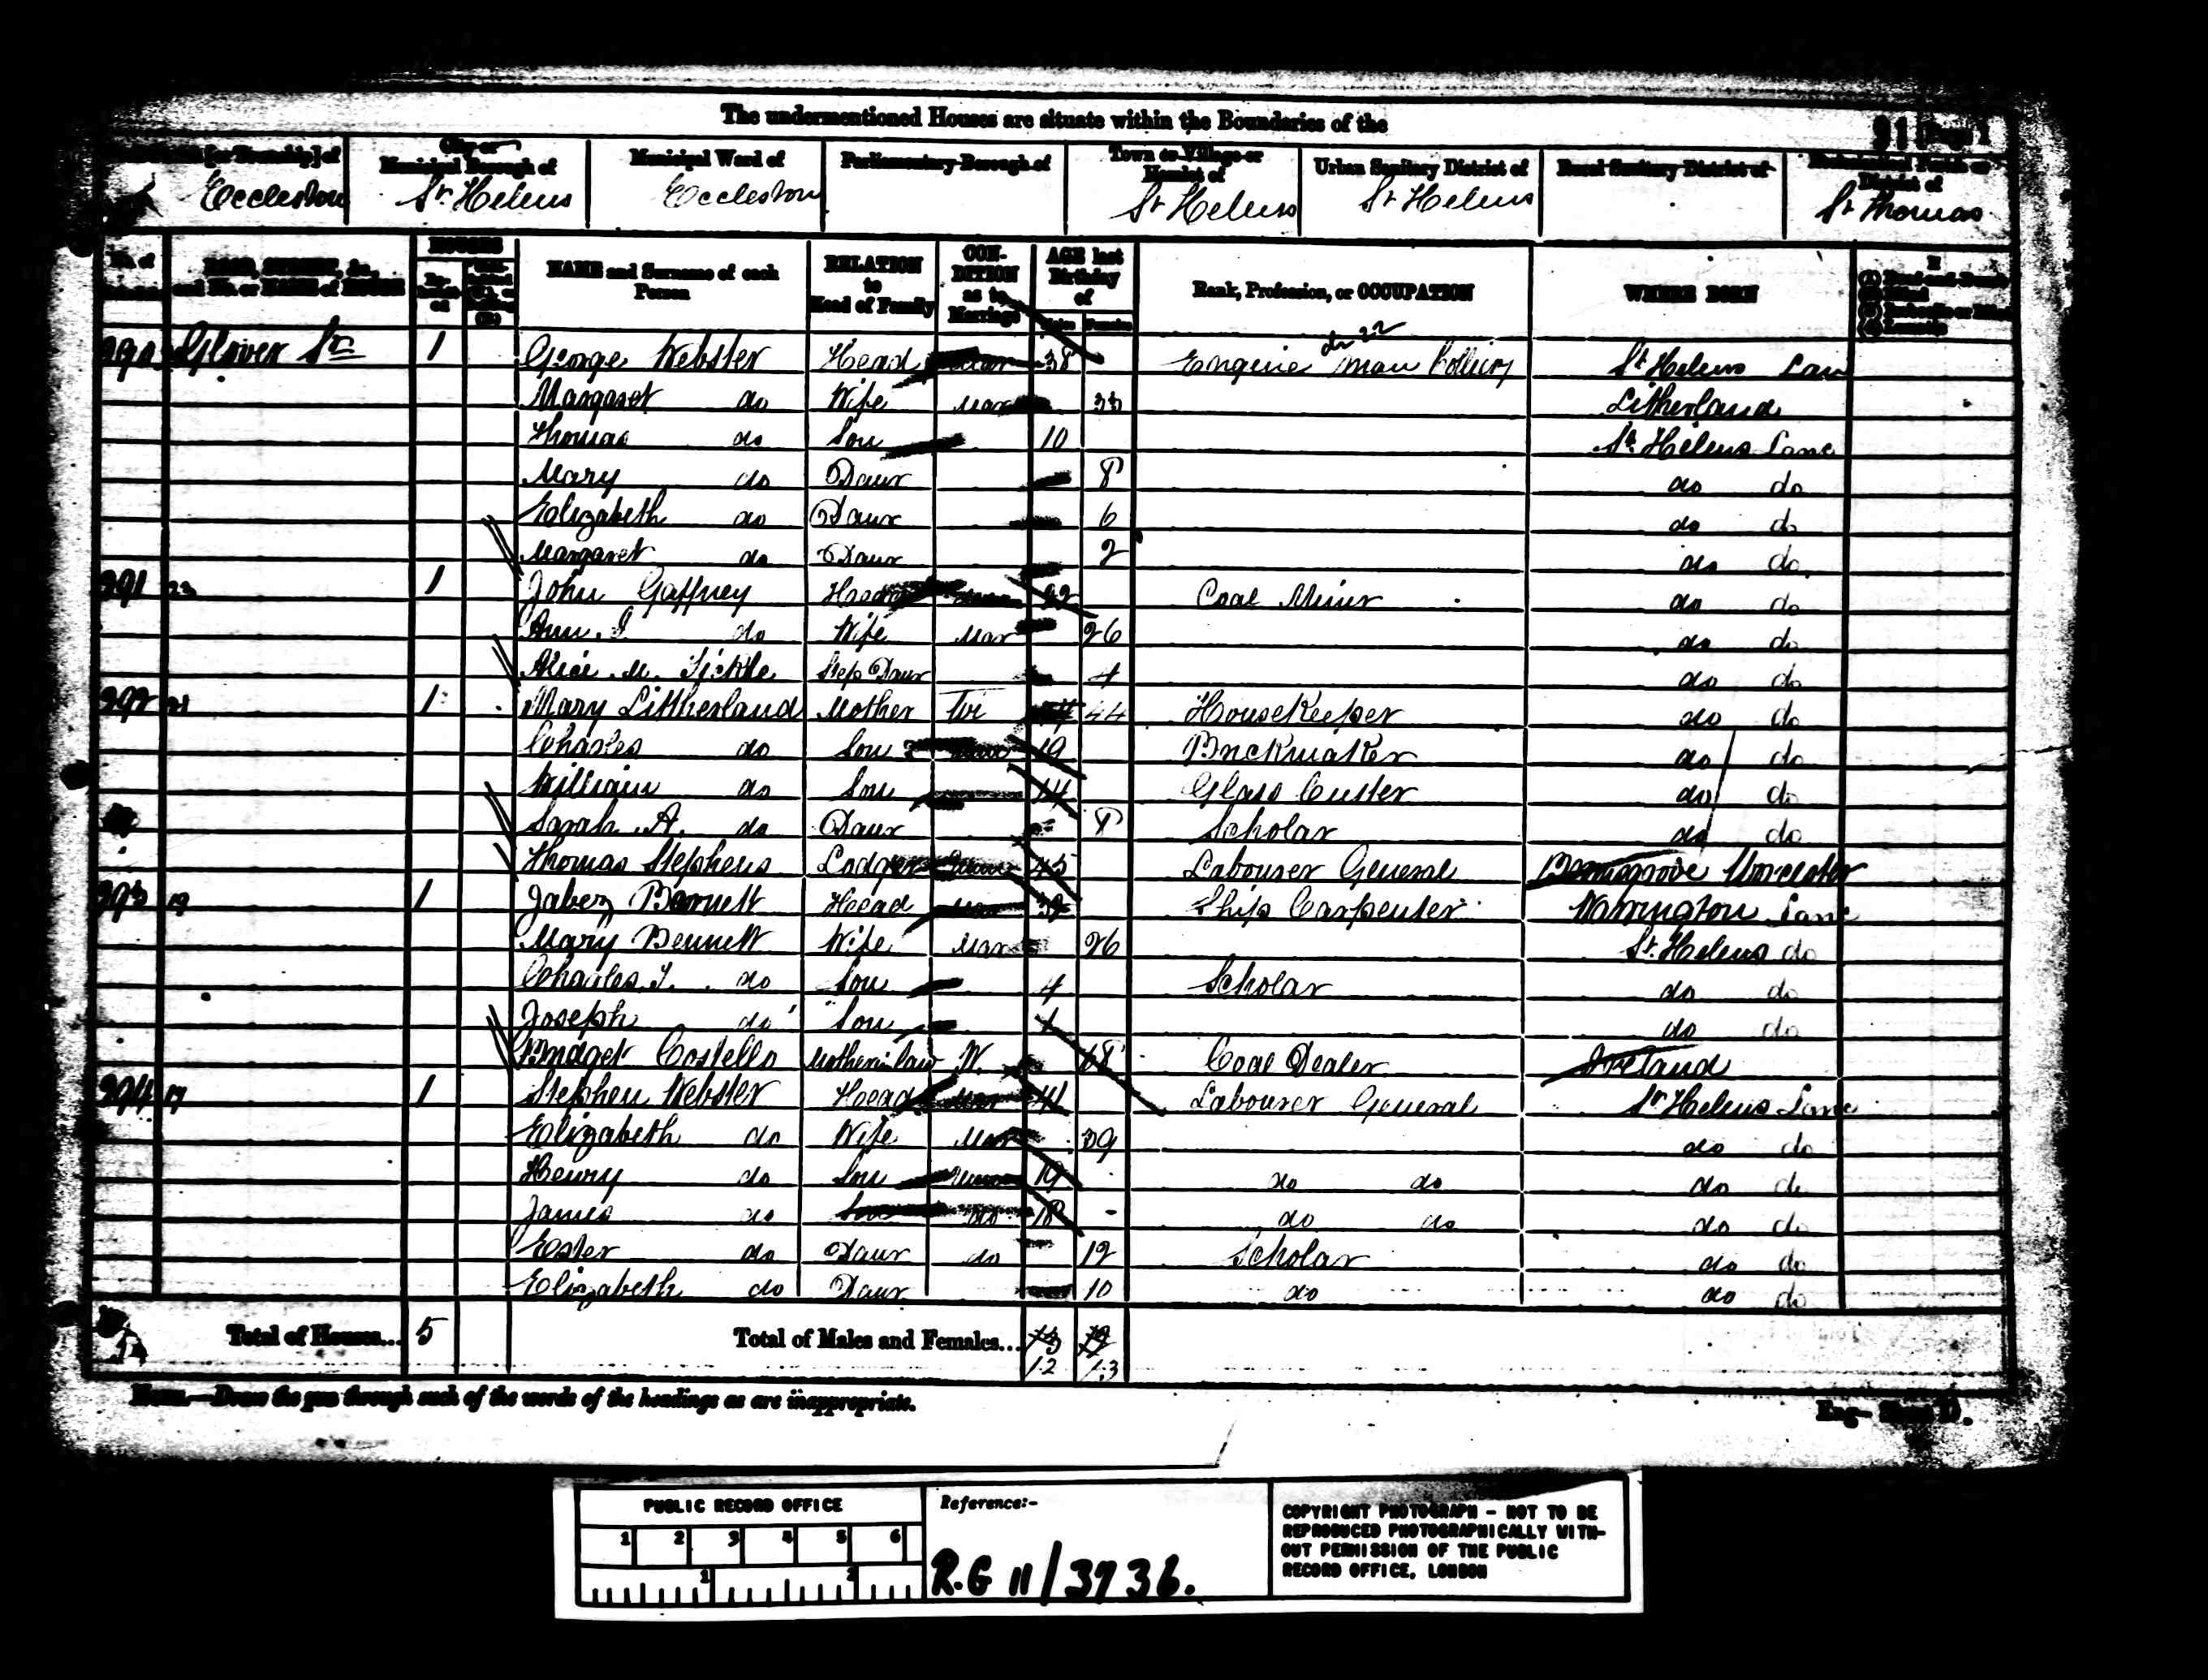 The undermentioned Houses are situate within the Boundaries of the
91 Page 1
[or Township] of
City or Municipal Borough of
Municipal Ward of
Parliamentary Borough of
Town or Village or Hamlet of
Urban Sanitary District of
Rural Sanitary District of
Ecclesiastical Parish or District of
Eccleston St. Helens Eccleston St Helens St Helens St Thomas
No. of ROAD, STREET, &c., and No. or NAME of HOUSE HOUSES NAME and Surname of each Person RELATION to Head of Family CONDITION as to Marriage AGE last Birthday of Males Females Rank, Profession, or OCCUPATION WHERE BORN If (1) Deaf-and-Dumb (2) Blind (3) Imbecile or Idiot (4) Lunatic
290 Glover St 1 George Webster Head Mar 38 Engine man Colliery St Helens Lan
Margaret do Wife Mar Litherland
Thomas do Son 10 St. Helens Lanc
Mary do Daur 8 do do
Elizabeth do Daur 6 do do
Margaret do Daur 2 do do
291 23 1 John Gaffney Head Coal Miner do do
Ann do Wife Mar 26 do do
Alice M. Tickle Step Daur 4 do do
292 21 1 Mary Littherland Mother 44 HouseKeeper do do
Charles do Son 19 Brickmaker do do
William do Son 14 Glass Cutter do do
Sarah A. do Daur 8 Scholar do do
Thomas Stephens Lodger 45 Labourer General Bromsgrove Worcester
293 19 1 Jabez Bennett Head Mar Ship Carpenter Warrington Lanc
Mary Bennett Wife Mar 26 St. Helens do
Charles do Son 4 Scholar do do
Joseph do Son 1 do do
Bridget Costello Mother in law W. 68 Coal Dealer Ireland
294 17 1 Stephen Webster Head Mar 41 Labourer General St Helens Lanc
Elizabeth do Wife Mar 39 do do
Henry do Son 19 do do do do
James do Son do 18 do do do do
Ester do Daur do 12 Scholar do do
Elizabeth do Daur 10 do do do
Total of Houses... 5 Total of Males and Females...
12 13
NOTE.—Draw the pen through such of the words of the headings as are inappropriate.
Eng— Sheet D.
PUBLIC RECORD OFFICE
1 2 3 4 5 6
1 2
Reference:-
R.G 11/3736.
COPYRIGHT PHOTOGRAPH - NOT TO BE
REPRODUCED PHOTOGRAPHICALLY WITH-
OUT PERMISSION OF THE PUBLIC
RECORD OFFICE, LONDON